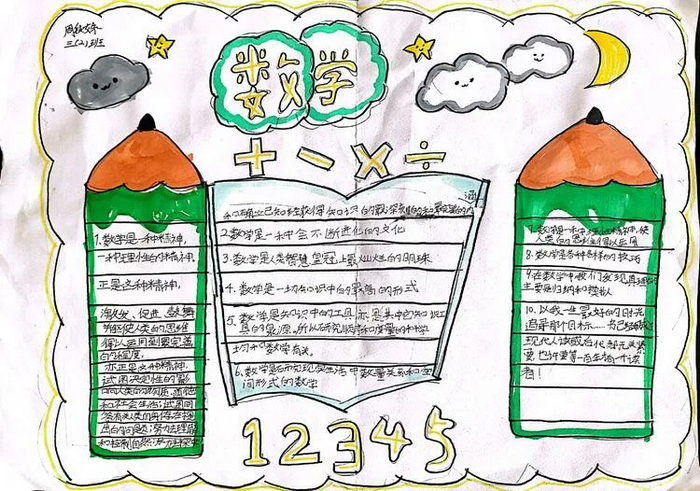 三(2)班
数学
+ - × ÷
1.数学是一种精神,
一种理性的精神,
正是这种精神,
激发、促进、鼓舞
人类的思维
得以运用到最完善
的程度,
亦正是这种精神,
试图决定性的影
响人类的物质、道德
和社会生活;试图回
答有关人类
出的问题;努力去理解
和控制自然;
2.数学是一种会不断进化的文化
3.数学是人类智慧皇冠上最灿烂的明珠
4.数学是一切知识中的最高的形式
5.数学是知识中的工具,亦是其中它知识工
具的泉源。所以研究顺序和度量的科学
均和数学有关。
6.数学是研究现实生活中数量关系和空
间形式的数学
人类的思维得以运用
8.数学是各种各样的技巧
9.在数学中我们发现真理的
主要是归纳和模拟
10.以我一生最好的时光
追寻那个目标……
现代人读或后代人读无关紧
要,也许要等一百年才有一个读
者!
1 2 3 4 5